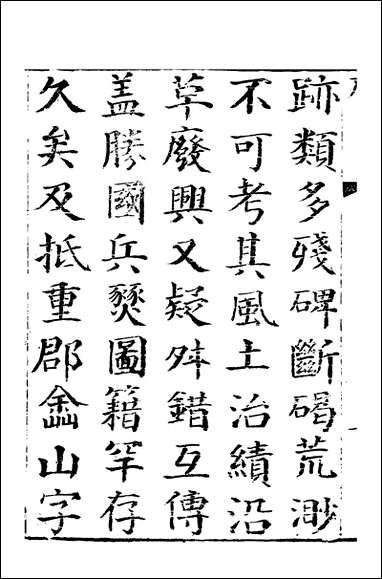 跡類多殘碑斷碣荒渺
不可考其風土治績沿
草廢興又疑舛錯互傳
盖勝國兵燹圖籍罕存
久矣及抵重郡畚山字